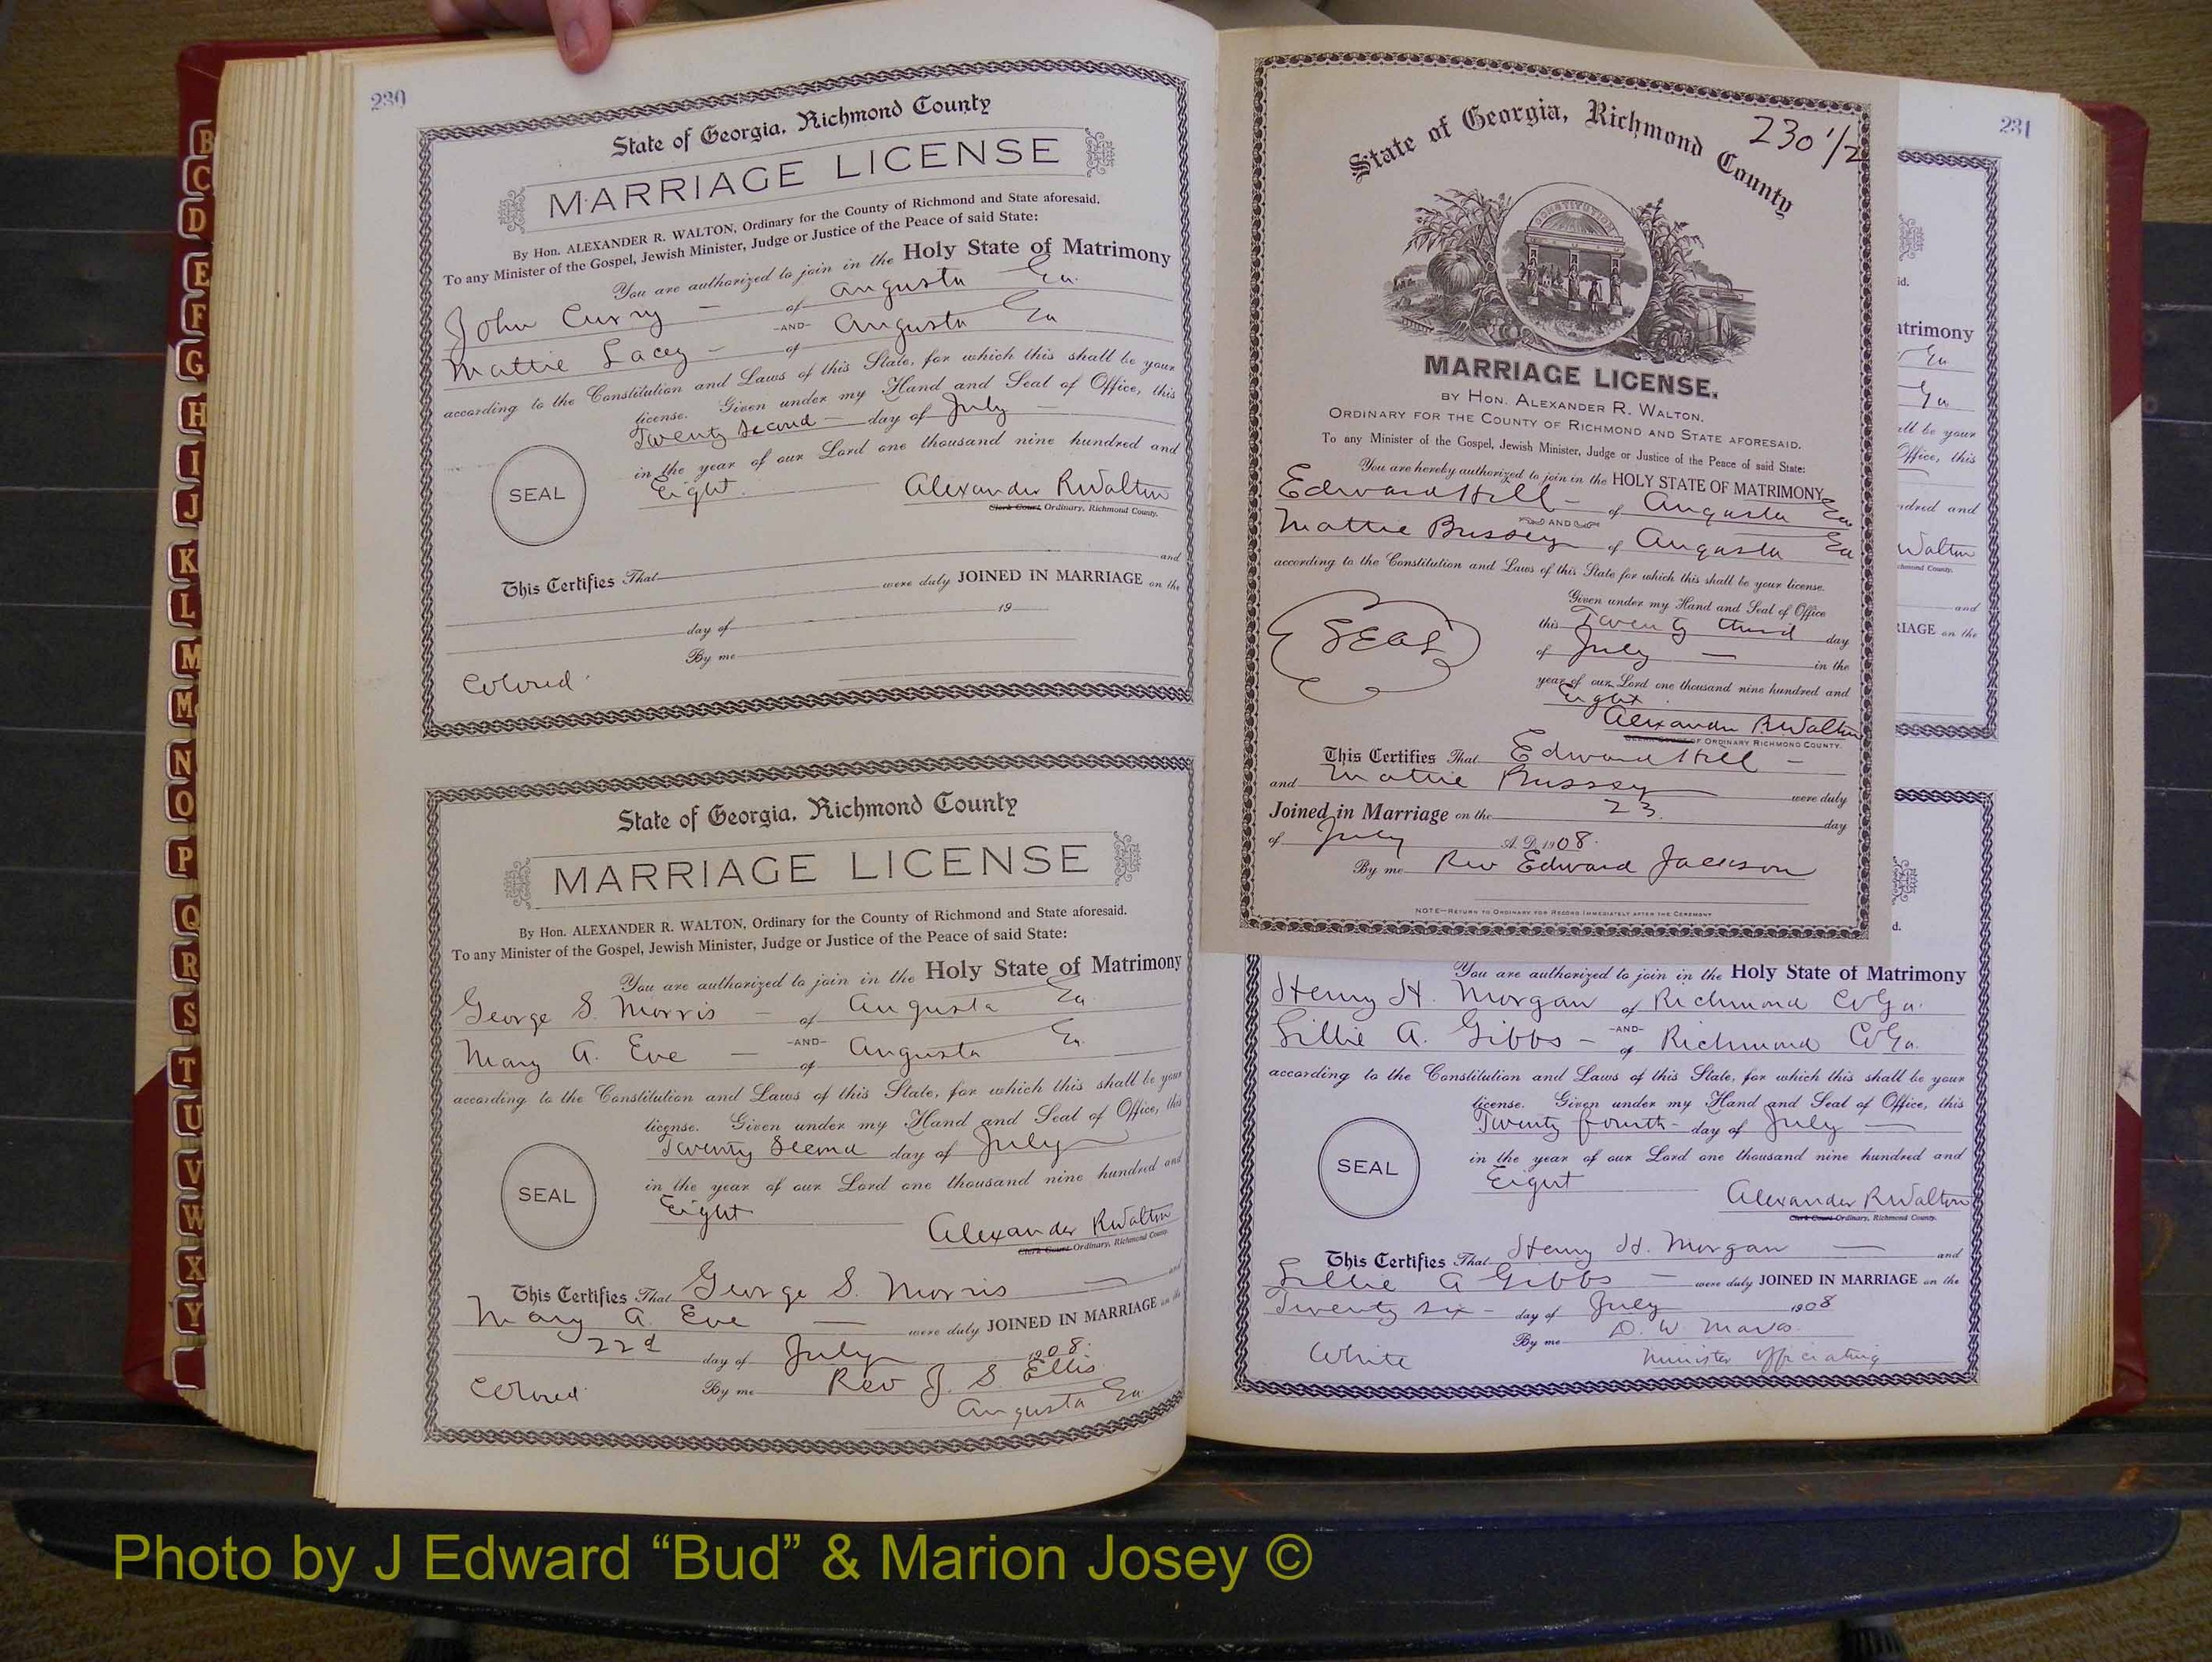 230
State of Georgia, Richmond County
MARRIAGE LICENSE
By Hon. ALEXANDER R. WALTON, Ordinary for the County of Richmond and State aforesaid.
To any Minister of the Gospel, Jewish Minister, Judge or Justice of the Peace of said State:
You are authorized to join in the Holy State of Matrimony
John Curry - of Augusta Ga.
-AND-
Mattie Lacey - of Augusta Ga
according to the Constitution and Laws of this State, for which this shall be your
license. Given under my Hand and Seal of Office, this
Twenty Second - day of July -
in the year of our Lord one thousand nine hundred and
Eight.
SEAL
Alexander R Walton
Clerk Court Ordinary, Richmond County.
This Certifies That and
were duly JOINED IN MARRIAGE on the
day of 19
By me
Colored
State of Georgia, Richmond County
MARRIAGE LICENSE
By Hon. ALEXANDER R. WALTON, Ordinary for the County of Richmond and State aforesaid.
To any Minister of the Gospel, Jewish Minister, Judge or Justice of the Peace of said State:
You are authorized to join in the Holy State of Matrimony
George S. Morris - of Augusta Ga.
-AND-
Mary A. Eve - of Augusta Ga.
according to the Constitution and Laws of this State, for which this shall be your
license. Given under my Hand and Seal of Office, this
Twenty Second day of July
in the year of our Lord one thousand nine hundred and
Eight
SEAL
Alexander R Walton
Clerk Court Ordinary, Richmond County.
This Certifies That George S. Morris - and
Mary A. Eve - were duly JOINED IN MARRIAGE on the
22d day of July 1908.
By me Rev J. S. Ellis
Colored Augusta Ga.
230 1/2
State of Georgia, Richmond County
CONSTITUTION
MARRIAGE LICENSE.
BY HON. ALEXANDER R. WALTON,
ORDINARY FOR THE COUNTY OF RICHMOND AND STATE AFORESAID.
To any Minister of the Gospel, Jewish Minister, Judge or Justice of the Peace of said State:
You are hereby authorized to join in the HOLY STATE OF MATRIMONY
Edward Hill - of Augusta Ga
AND
Mattie Bussey of Augusta Ga
according to the Constitution and Laws of this State for which this shall be your license.
Given under my Hand and Seal of Office
this Twenty third day
of July - in the
year of our Lord one thousand nine hundred and
Eight
SEAL
Alexander R Walton
CLERK COURT OF ORDINARY RICHMOND COUNTY.
This Certifies That Edward Hill -
and Mattie Bussey were duly
Joined in Marriage on the 23. day
of July A. D. 1908.
By me Rev Edward Jackson
NOTE—RETURN TO ORDINARY FOR RECORD IMMEDIATELY AFTER THE CEREMONY
231
id.
atrimony
Ga
Ga
all be your
Office, this
ndred and
Walton
chmond County.
and
RIAGE on the
d.
You are authorized to join in the Holy State of Matrimony
Henry H. Morgan of Richmond Co Ga.
-AND-
Lillie A. Gibbs - of Richmond Co Ga.
according to the Constitution and Laws of this State, for which this shall be your
license. Given under my Hand and Seal of Office, this
Twenty fourth - day of July -
in the year of our Lord one thousand nine hundred and
Eight
SEAL
Alexander R Walton
Clerk Court Ordinary, Richmond County.
This Certifies That Henry H. Morgan - and
Lillie A Gibbs - were duly JOINED IN MARRIAGE on the
Twenty six - day of July 1908
By me D. W.
White Minister officiating
B
C
D
E
F
G
H
I
J
K
L
M
Mc
N
O
P
Q
R
S
T
U
V
W
X
Y
Photo by J Edward “Bud” & Marion Josey ©